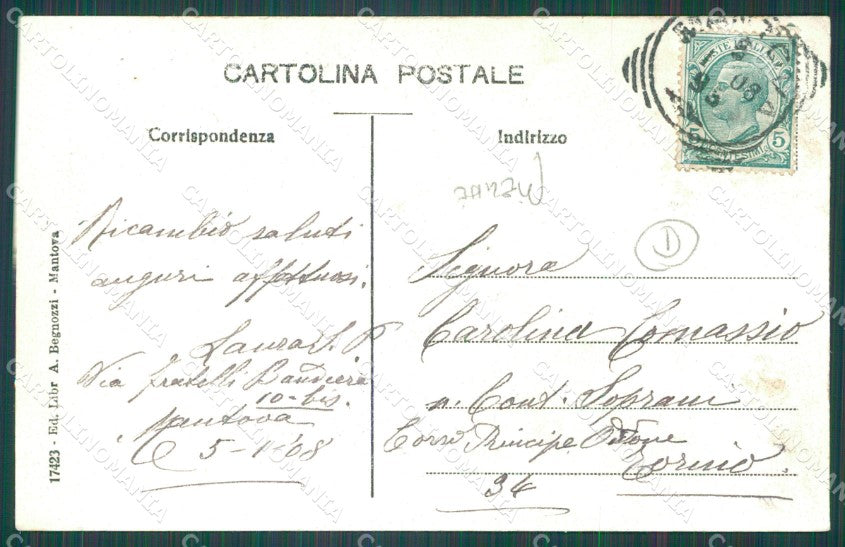 CARTOLINA POSTALE
Corrispondenza
Indirizzo
Ricambio saluti
auguri affettuosi.
Laura
Via fratelli Bandiera
10-bis.
Mantova
5-1-08
Signora
Carolina Comassio
Cont. Soprani
Corso Principe Oddone
Torino.
34
D
5
17423 - Ed. Libr A. Begnozzi - Mantova
CARTOLINOMANIA